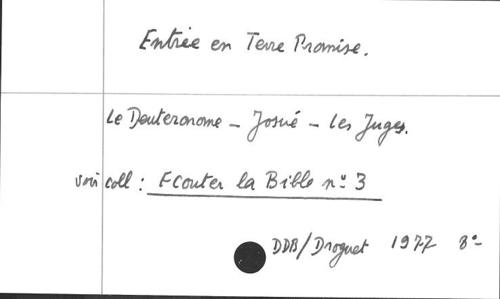 Entrée en Terre Promise.
Le Deuteronome - Josué - Les Juges.
voir coll : Ecouter la Bible n° 3
DDB/Droguet 1977 8°